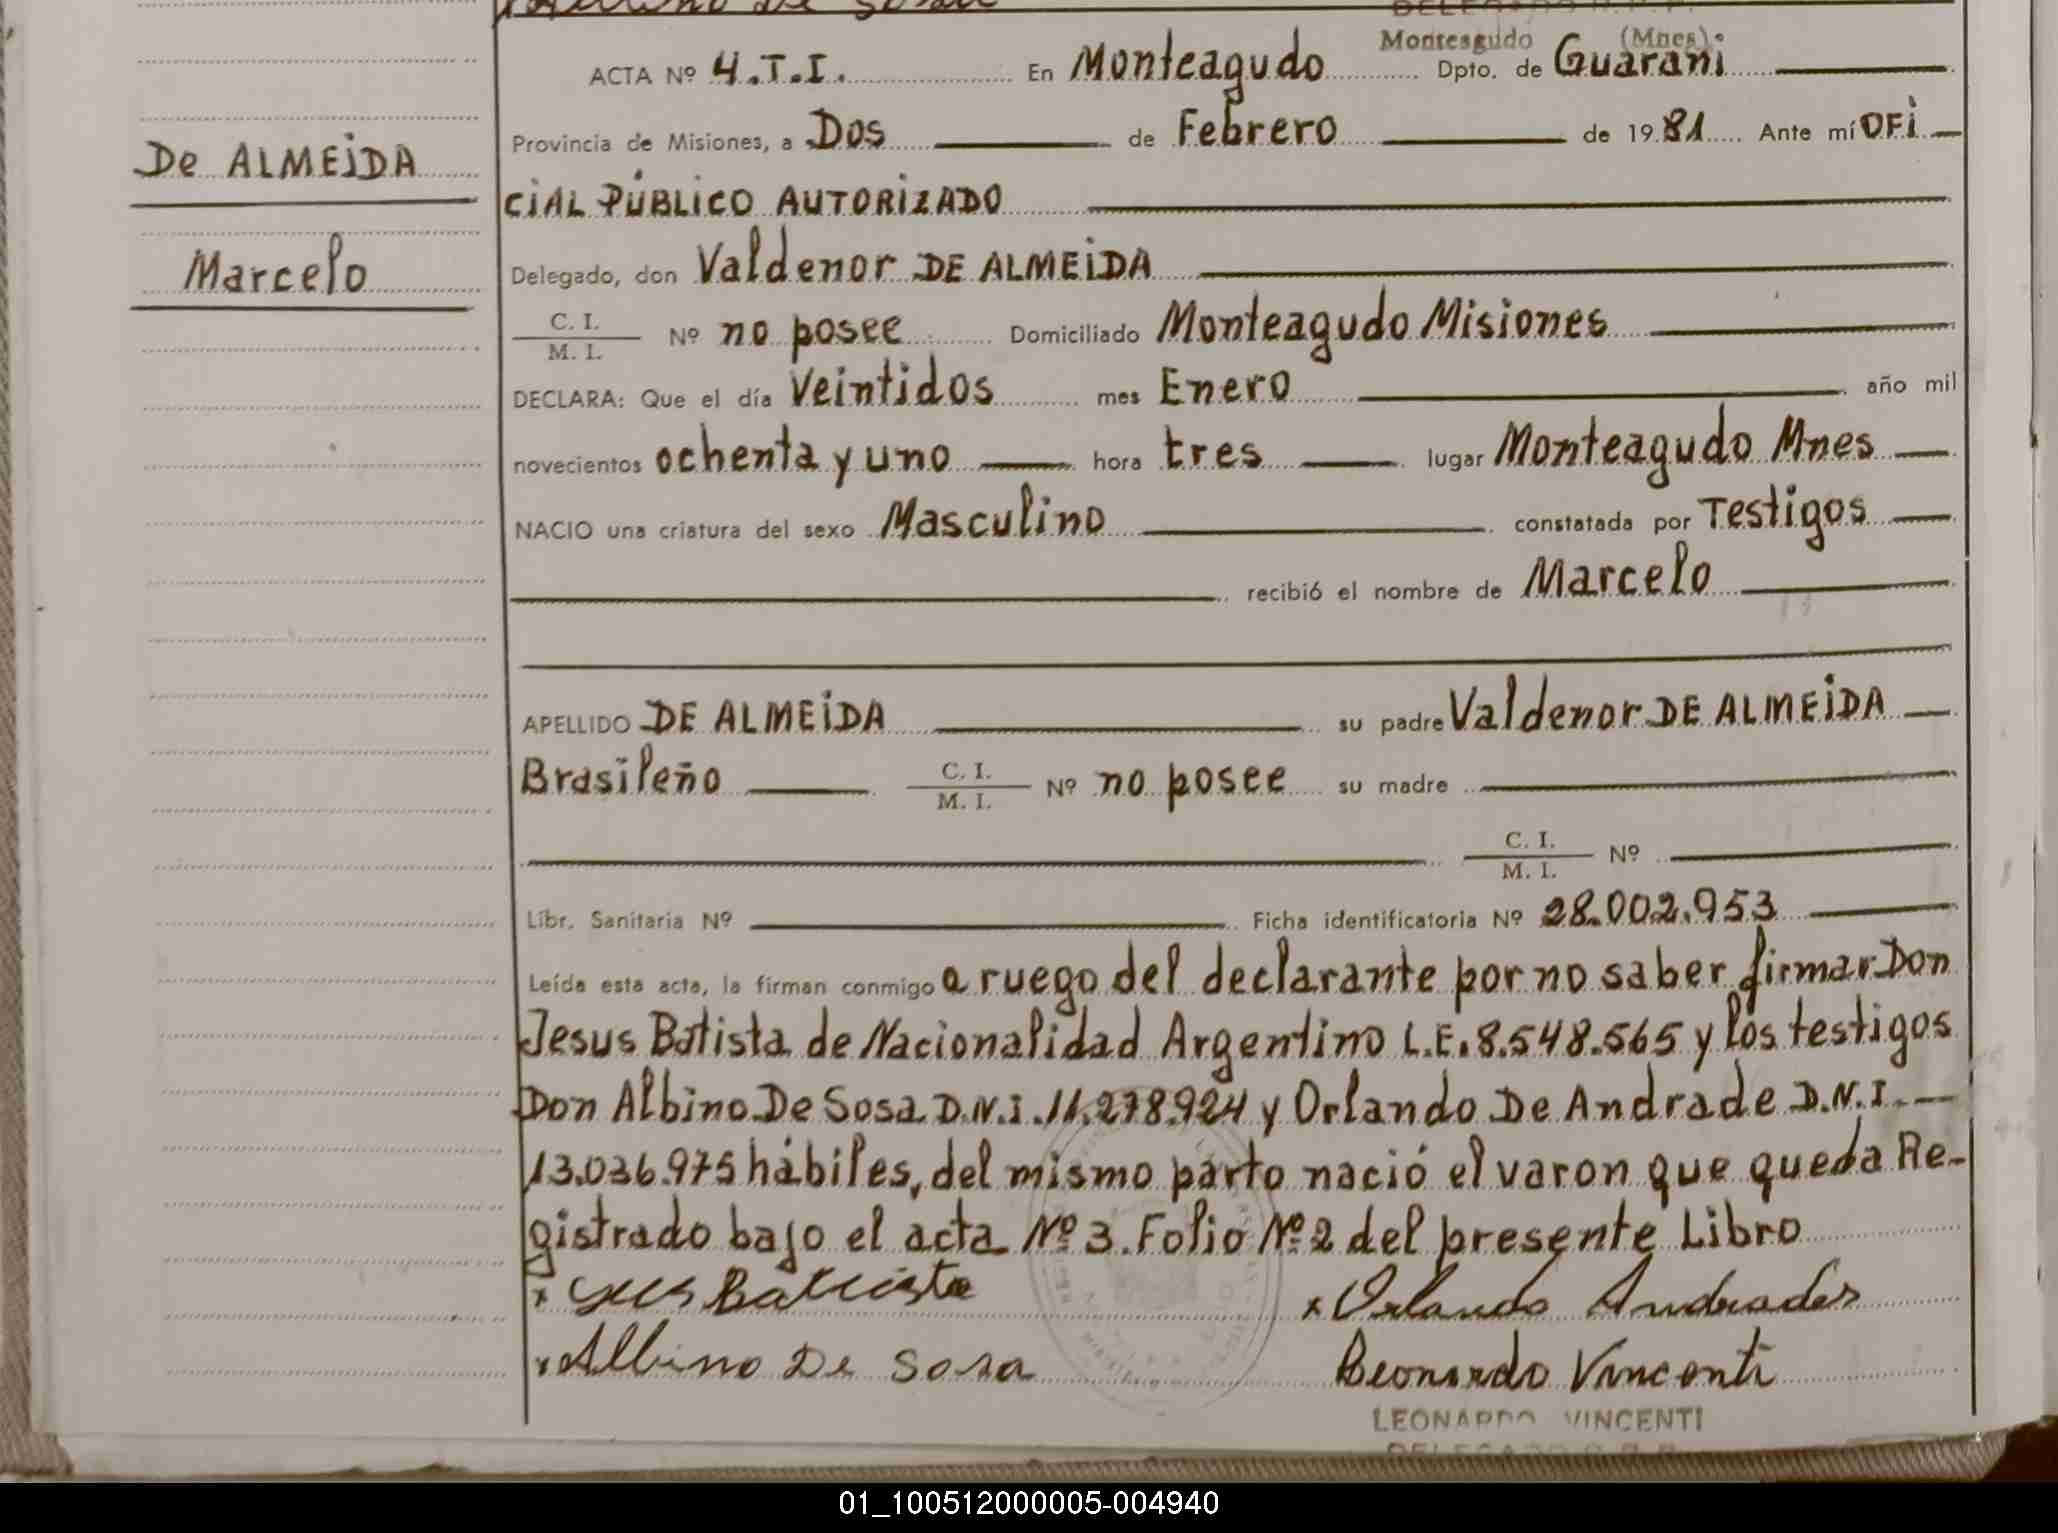 Albino De Sosa
DELEGADO R.R.P.
Monteagudo (Mnes)
ACTA Nº 4.T.I. En Monteagudo Dpto. de Guarani
Provincia de Misiones, a Dos de Febrero de 1981 Ante mí OFi
CiAL PÚBLiCO AUTORiZADO
De ALMEiDA
Marcelo
Delegado, don Valdenor DE ALMEiDA
C. I.
M. I. Nº no posee Domiciliado Monteagudo Misiones
DECLARA: Que el día Veintidos mes Enero año mil
novecientos ochenta y uno hora tres lugar Monteagudo Mnes
NACIO una criatura del sexo Masculino constatada por Testigos
recibió el nombre de Marcelo
APELLIDO DE ALMEiDA su padre Valdenor DE ALMEiDA
Brasileño C. I.
M. I. Nº no posee su madre
C. I.
M. I. Nº
Libr. Sanitaria Nº Ficha identificatoria Nº 28.002.953
Leída esta acta, la firman conmigo a ruego del declarante por no saber firmar Don
Jesus Batista de Nacionalidad Argentino L.E. 8.548.565 y los testigos
Don Albino De Sosa D.N.I. 11.278.924 y Orlando De Andrade D.N.I.
13.036.975 hábiles, del mismo parto nació el varon que queda Re-
gistrado bajo el acta Nº 3. Folio Nº 2 del presente Libro
x Battista x Orlando Andrades
x Albino De Sosa Leonardo Vincenti
LEONARDO VINCENTI
01_100512000005-004940